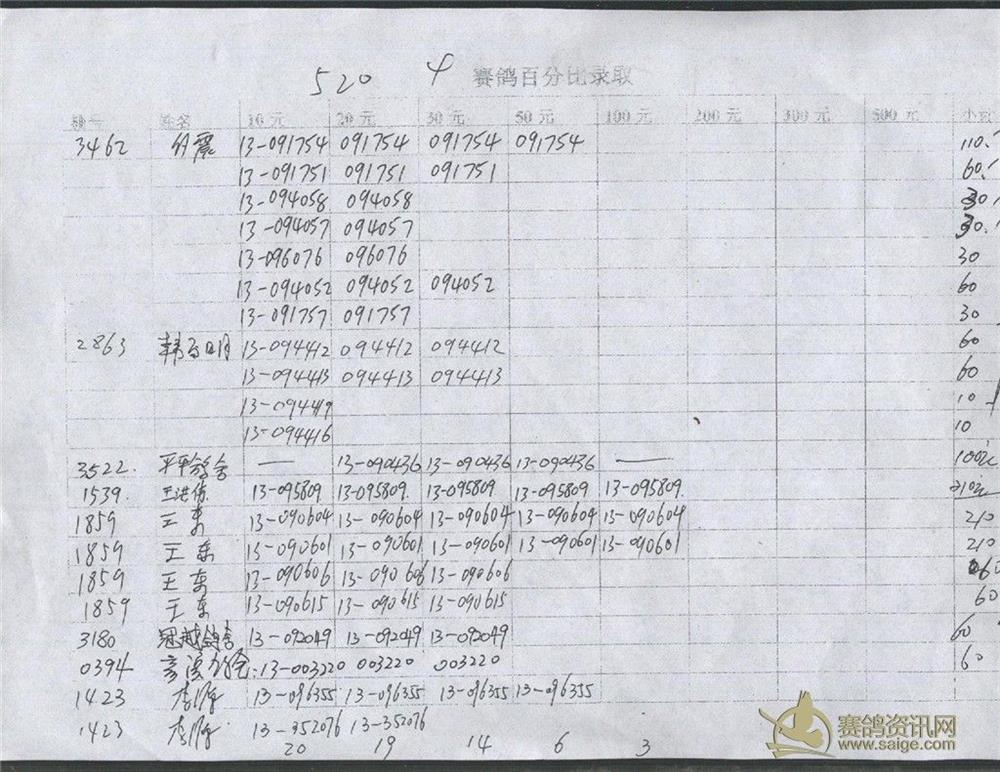 520 4 赛鸽百分比录取
棚号 姓名 10元 20元 30元 50元 100元 200元 300元 500元
3462 13-091754 091754 091754 091754 110.
13-091751 091751 091751 60.
13-094058 094058 30.
13-094057 094057 30.
13-096076 096076 30
13-094052 094052 094052 60
13-091757 091757 30
2863 13-094412 094412 094412 60
13-094413 094413 094413 60
13-094419 10
13-094416 10
3522. 平和鸽舍 — 13-090436 13-090436 13-090436 — 100元
1539. 13-095809 13-095809. 13-095809 13-095809 13-095809. 210元
1859 王东 13-090604 13-090604 13-090604 13-090604 13-090604 210
1859 王东 13-090601 13-090601 13-090601 13-090601 13-090601 210
1859 王东 13-090606 13-090606 13-090606 60
1859 王东 13-090615 13-090615 13-090615 60
3180 冠越鸽舍 13-092049 13-092049 13-092049 60
0394 13-003220 003220 003220 60
1423 13-096355 13-096355 13-096355 13-096355
1423 13-352076 13-352076
20 19 14 6 3
赛鸽资讯网
www.saige.com